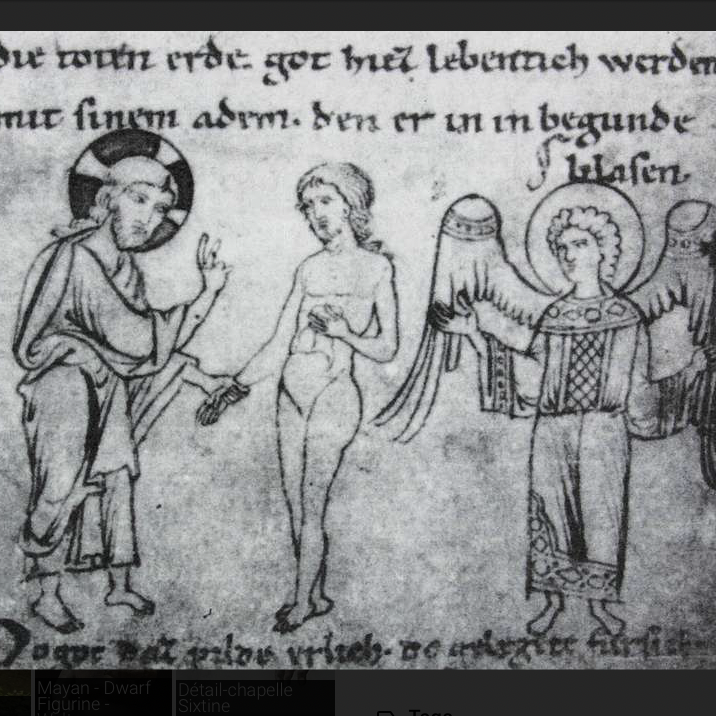 die toten erde. got hiez lebentich werden
mit sinem adem. den er in in begunde
blasen.
Do got daz pilde erlich.
Mayan - Dwarf
Figurine -
Détail-chapelle
Sixtine
Tags